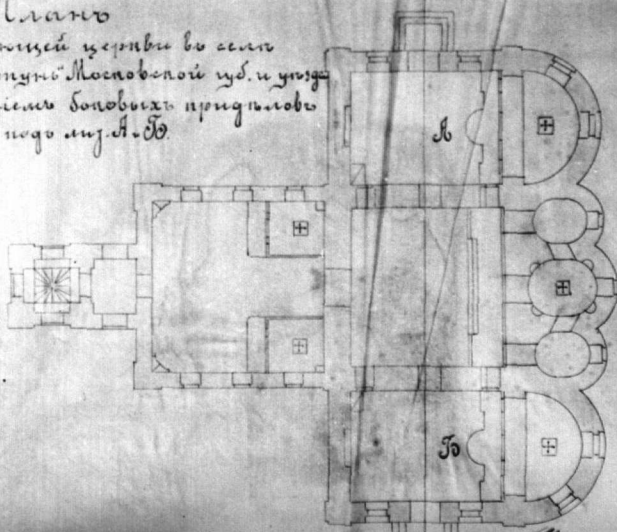 Планъ
ющей церкви въ селѣ
тунъ" Московской губ. и уѣзда
іемъ боковыхъ придѣловъ
подъ лит. А и Б.
А
Б